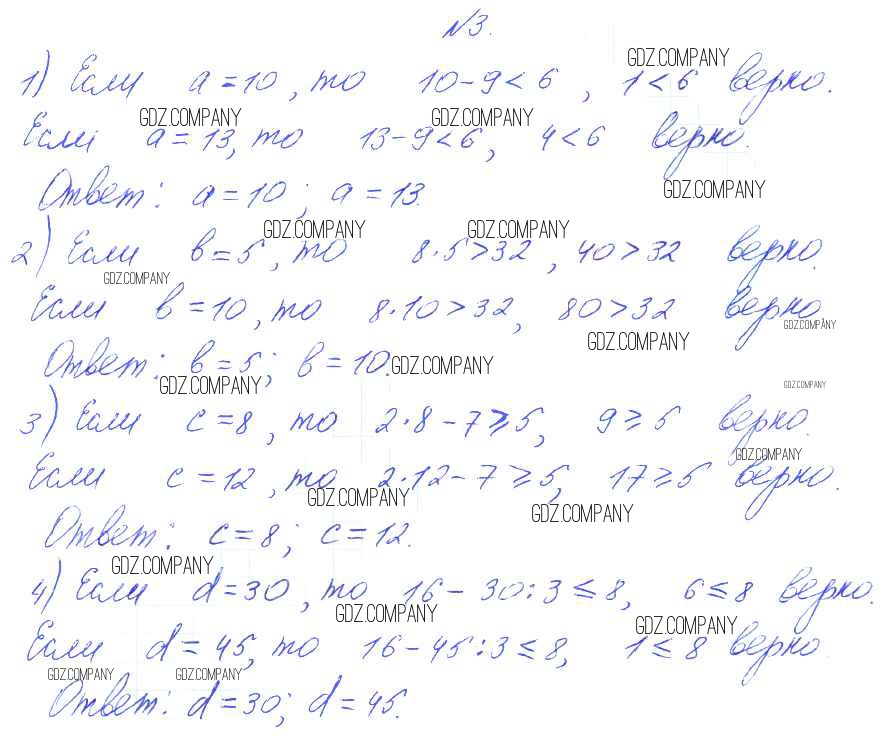 №3.
GDZ.COMPANY
1) Если a = 10, то 10 - 9 < 6, 1 < 6 верно.
GDZ.COMPANY GDZ.COMPANY
Если a = 13, то 13 - 9 < 6, 4 < 6 верно.
Ответ: a = 10; a = 13. GDZ.COMPANY
GDZ.COMPANY GDZ.COMPANY
2) Если в = 5, то 8 · 5 > 32, 40 > 32 верно.
GDZ.COMPANY
Если в = 10, то 8 · 10 > 32, 80 > 32 верно
GDZ.COMPANY GDZ.COMPANY
Ответ: в = 5; в = 10. GDZ.COMPANY
GDZ.COMPANY GDZ.COMPANY
3) Если c = 8, то 2 · 8 - 7 ⩾ 5, 9 ⩾ 5 верно.
GDZ.COMPANY
Если c = 12, то 2 · 12 - 7 ⩾ 5, 17 ⩾ 5 верно.
GDZ.COMPANY GDZ.COMPANY
Ответ: c = 8; c = 12.
GDZ.COMPANY
4) Если d = 30, то 16 - 30 : 3 ⩽ 8, 6 ⩽ 8 верно.
GDZ.COMPANY GDZ.COMPANY
Если d = 45, то 16 - 45 : 3 ⩽ 8, 1 ⩽ 8 верно.
GDZ.COMPANY GDZ.COMPANY
Ответ: d = 30; d = 45.